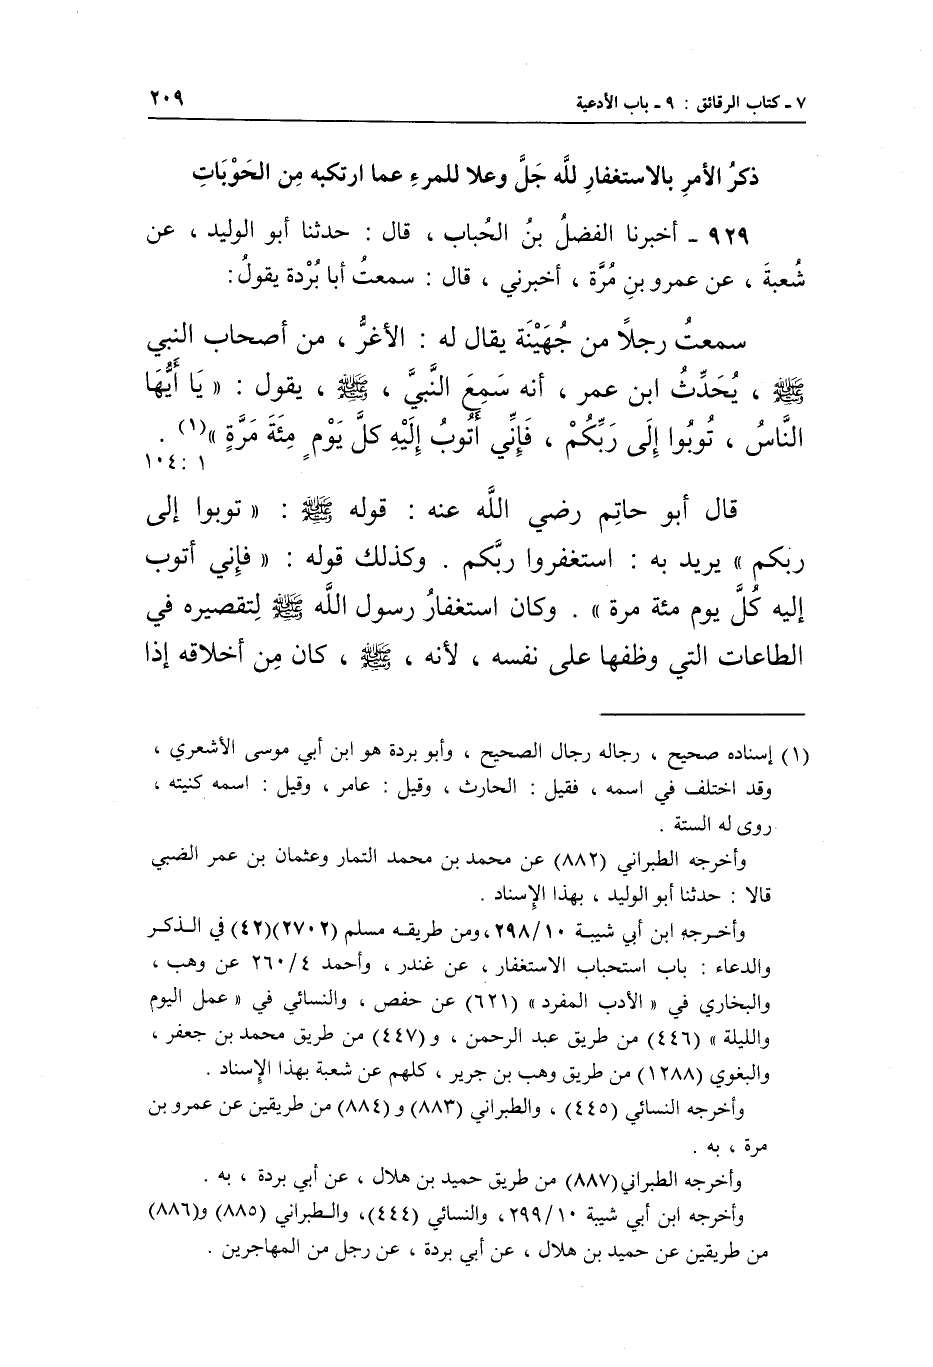 ٧ - كتاب الرقائق : ٩ - باب الأدعية ٢٠٩
ذكرُ الأمرِ بالاستغفارِ للَّه جَلَّ وعلا للمرءِ عما ارتكبه مِن الحَوْبَاتِ
٩٢٩ - أخبرنا الفضلُ بنُ الحُباب ، قال : حدثنا أبو الوليد ، عن
شُعبةَ ، عن عمرو بنِ مُرَّة ، أخبرني ، قال : سمعتُ أبا بُرْدة يقولُ:
سمعتُ رجلاً من جُهَيْنَة يقال له : الأغرُّ ، من أصحاب النبي
ﷺ ، يُحَدِّثُ ابن عمر ، أنه سَمِعَ النَّبيَّ ، ﷺ ، يقول : « يَا أَيُّهَا
النَّاسُ ، تُوبُوا إِلَى رَبِّكُمْ ، فَإِنِّي أَتُوبُ إِلَيْهِ كلَّ يَوْمٍ مِئَةَ مَرَّةٍ »(١) .
١ :١٠٤
قال أبو حاتِم رضي اللَّه عنه : قوله ﷺ : « توبوا إلى
ربكم » يريد به : استغفروا ربَّكم . وكذلك قوله : « فإني أتوب
إليه كُلَّ يوم مئة مرة » . وكان استغفارُ رسول اللَّه ﷺ لِتقصيره في
الطاعات التي وظفها على نفسه ، لأنه ، ﷺ ، كان مِن أخلاقه إذا
(١) إسناده صحيح ، رجاله رجال الصحيح ، وأبو بردة هو ابن أبي موسى الأشعري ،
وقد اختلف في اسمه ، فقيل : الحارث ، وقيل : عامر ، وقيل : اسمه كنيته ،
روى له الستة .
وأخرجه الطبراني (٨٨٢) عن محمد بن محمد التمار وعثمان بن عمر الضبي
قالا : حدثنا أبو الوليد ، بهذا الإسناد .
وأخرجه ابن أبي شيبة ٢٩٨/١٠، ومن طريقه مسلم (٢٧٠٢)(٤٢) في الذكر
والدعاء : باب استحباب الاستغفار ، عن غندر ، وأحمد ٢٦٠/٤ عن وهب ،
والبخاري في « الأدب المفرد » (٦٢١) عن حفص ، والنسائي في « عمل اليوم
والليلة » (٤٤٦) من طريق عبد الرحمن ، و(٤٤٧) من طريق محمد بن جعفر ،
والبغوي (١٢٨٨) من طريق وهب بن جرير ، كلهم عن شعبة بهذا الإسناد .
وأخرجه النسائي (٤٤٥) ، والطبراني (٨٨٣) و (٨٨٤) من طريقين عن عمرو بن
مرة ، به .
وأخرجه الطبراني(٨٨٧) من طريق حميد بن هلال ، عن أبي بردة ، به .
وأخرجه ابن أبي شيبة ٢٩٩/١٠، والنسائي (٤٤٤)، والطبراني (٨٨٥) و(٨٨٦)
من طريقين عن حميد بن هلال ، عن أبي بردة ، عن رجل من المهاجرين .